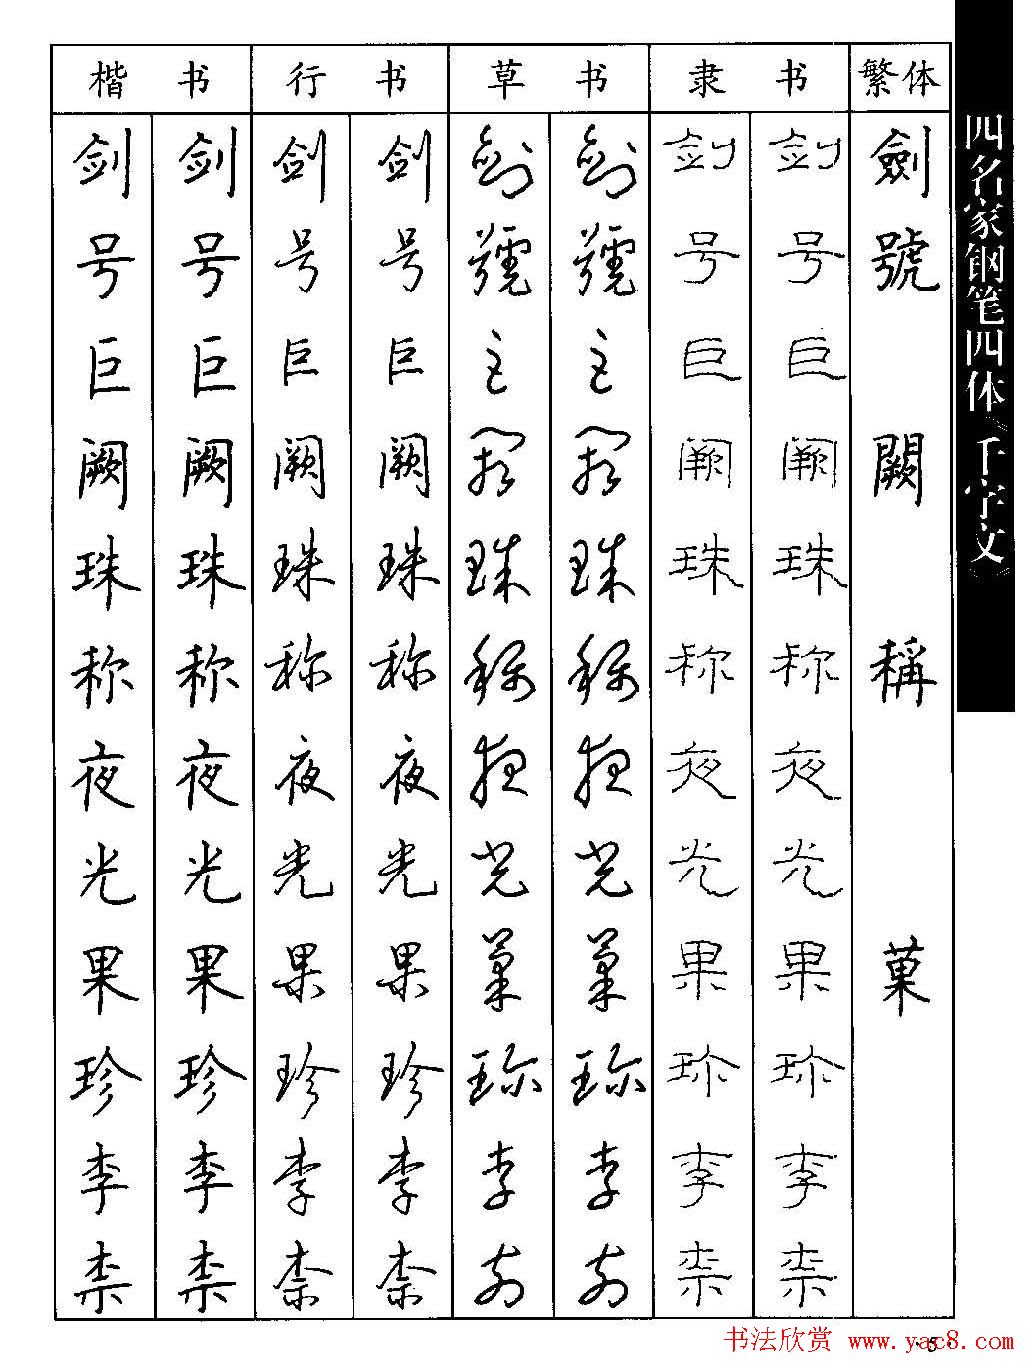 楷书 行书 草书 隶书 繁体
剑 剑 剑 剑 剑 剑 剑 剑 劍
号 号 号 号 號 號 号 号 號
巨 巨 巨 巨 巨 巨 巨 巨
阙 阙 阙 阙 阙 阙 阙 阙 闕
珠 珠 珠 珠 珠 珠 珠 珠
称 称 称 称 稱 稱 称 称 稱
夜 夜 夜 夜 夜 夜 夜 夜
光 光 光 光 光 光 光 光
果 果 果 果 菓 菓 果 果 菓
珍 珍 珍 珍 珍 珍 珍 珍
李 李 李 李 李 李 李 李
柰 柰 柰 柰 柰 柰 柰 柰
四名家钢笔四体《千字文》
·5·
书法欣赏 www.yac8.com